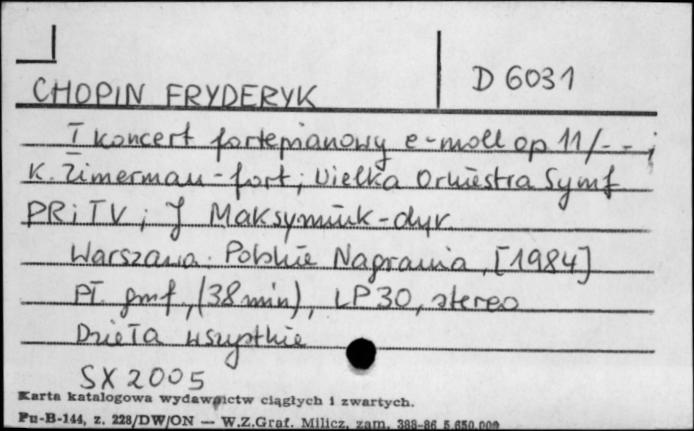 D 6031
CHOPIN FRYDERYK
I koncert fortepianowy e-moll op 11/- - ;
K. Zimerman - fort; Wielka Orkiestra Symf
PRiTV ; J Maksymiuk - dyr.
Warszawa. Polskie Nagrania, [1984]
Pł. gmf., (38 min), LP 30, stereo
Dzieła wszystkie
SX 2005
Karta katalogowa wydawnictw ciągłych i zwartych.
Pu-B-144, z. 228/DW/ON — W.Z.Graf. Milicz, zam. 388-86 5 650.000